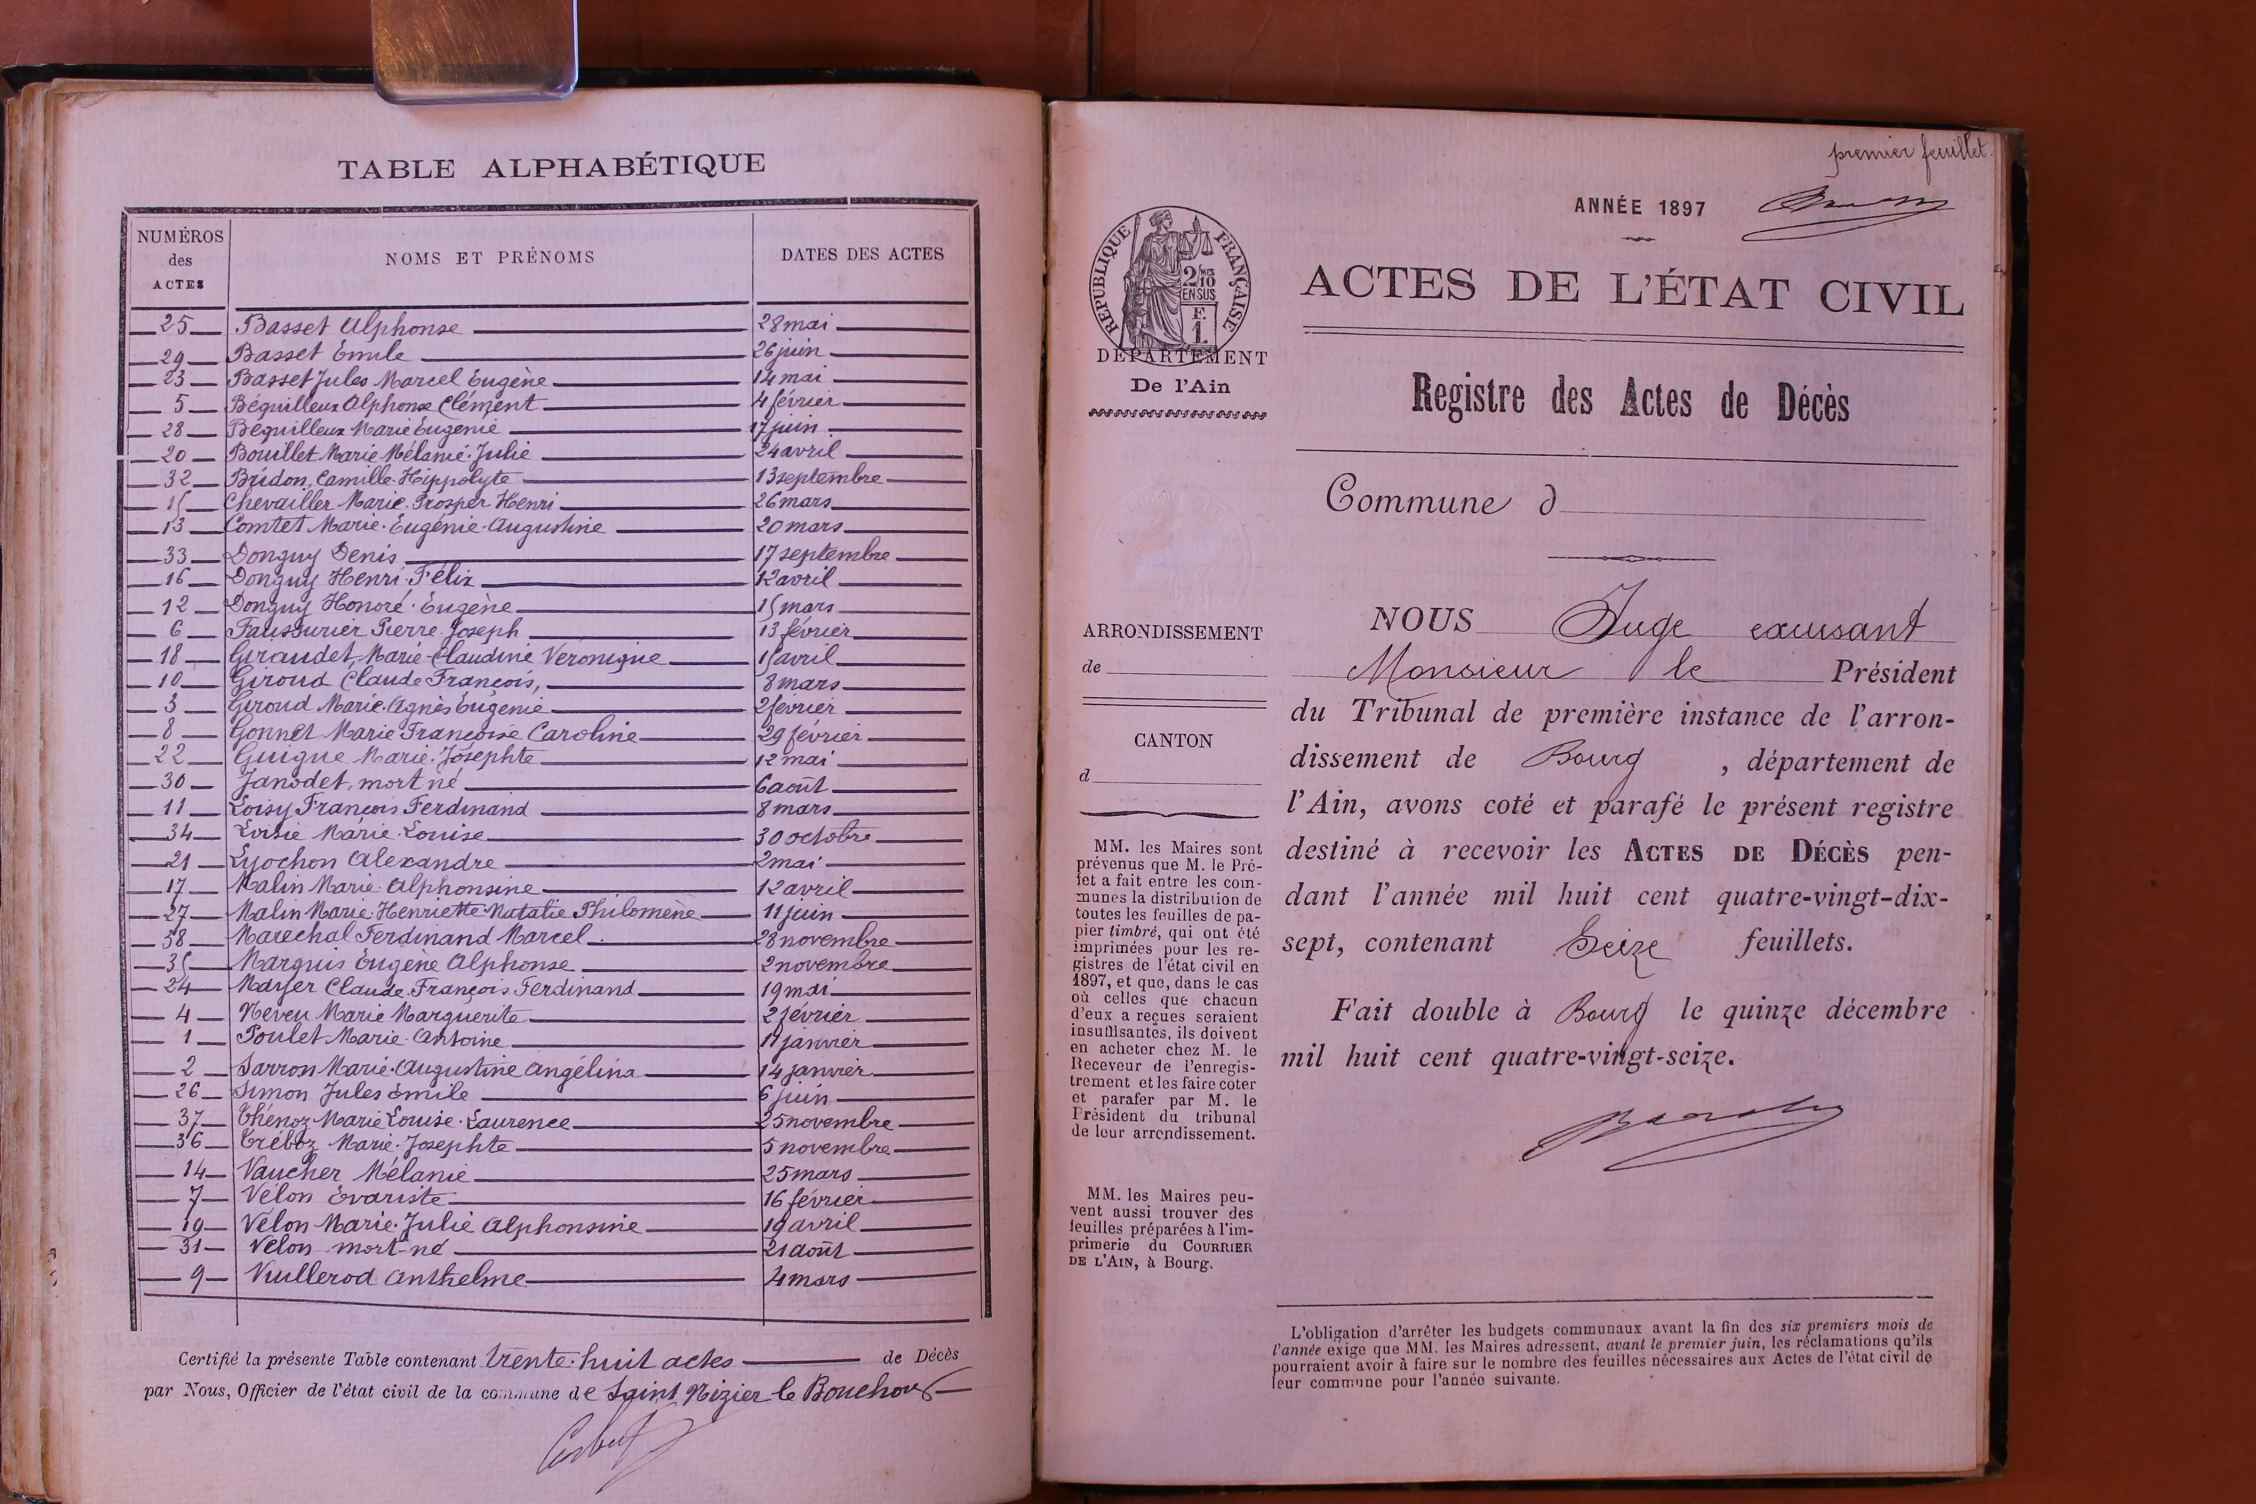 TABLE ALPHABÉTIQUE
NUMÉROS des ACTES NOMS ET PRÉNOMS DATES DES ACTES
25 Basset Alphonse 28 mai
29 Basset Émile 26 juin
23 Basset Jules Marcel Eugène 14 mai
5 Béguilleux Alphonse Clément 4 février
28 Béguilleux Marie Eugénie 17 juin
20 Bouillet Marie Mélanie Julie 24 avril
32 Bridon, Camille Hippolyte 13 septembre
15 Chevailler Marie Prosper Henri 26 mars
13 Comtet Marie Eugénie Augustine 20 mars
33 Donguy Denis 17 septembre
16 Donguy Henri Félix 12 avril
12 Donguy Honoré Eugène 15 mars
6 Faussurier Pierre Joseph 13 février
18 Giraudet Marie Claudine Véronique 15 avril
10 Giroud Claude François, 8 mars
3 Giroud Marie Agnès Eugénie 2 février
8 Gonnet Marie Françoise Caroline 29 février
22 Guigue Marie Josephte 12 mai
30 Janodet, mort né 6 août
11 Loisy François Ferdinand 8 mars
34 Loisie Marie Louise 30 octobre
21 Lyochon Alexandre 2 mai
17 Malin Marie Alphonsine 12 avril
27 Malin Marie Henriette Natalie Philomène 11 juin
38 Marechal Ferdinand Marcel 28 novembre
35 Marquis Eugène Alphonse 2 novembre
24 Mayer Claude François Ferdinand 19 mai
4 Neveu Marie Marguerite 2 février
1 Poulet Marie Antoine 11 janvier
2 Sarron Marie Augustine Angélina 14 janvier
26 Simon Jules Émile 6 juin
37 Thénoz Marie Louise Laurence 25 novembre
36 Tréboz Marie Josephte 5 novembre
14 Vaucher Mélanie 25 mars
7 Vélon Évariste 16 février
19 Vélon Marie Julie Alphonsine 19 avril
31 Vélon mort-né 21 août
9 Vuillerod Anthelme 4 mars
Certifié la présente Table contenant trente-huit actes de Décès
par Nous, Officier de l'état civil de la commune de Saint Nizier le Bouchoux
premier feuillet
ANNÉE 1897
RÉPUBLIQUE FRANÇAISE
2/10 EN SUS
F. 1
DÉPARTEMENT
De l'Ain
ACTES DE L'ÉTAT CIVIL
Registre des Actes de Décès
Commune d
ARRONDISSEMENT
de
CANTON
d
MM. les Maires sont
prévenus que M. le Pré-
fet a fait entre les com-
munes la distribution de
toutes les feuilles de pa-
pier timbré, qui ont été
imprimées pour les re-
gistres de l'état civil en
1897, et que, dans le cas
où celles que chacun
d'eux a reçues seraient
insuffisantes, ils doivent
en acheter chez M. le
Receveur de l'enregis-
trement et les faire coter
et parafer par M. le
Président du tribunal
de leur arrondissement.
MM. les Maires peu-
vent aussi trouver des
feuilles préparées à l'im-
primerie du COURRIER
DE L'AIN, à Bourg.
NOUS Juge excusant
Monsieur le Président
du Tribunal de première instance de l'arron-
dissement de Bourg , département de
l'Ain, avons coté et parafé le présent registre
destiné à recevoir les ACTES DE DÉCÈS pen-
dant l'année mil huit cent quatre-vingt-dix-
sept, contenant Seize feuillets.
Fait double à Bourg le quinze décembre
mil huit cent quatre-vingt-seize.
L'obligation d'arrêter les budgets communaux avant la fin des six premiers mois de
l'année exige que MM. les Maires adressent, avant le premier juin, les réclamations qu'ils
pourraient avoir à faire sur le nombre des feuilles nécessaires aux Actes de l'état civil de
leur commune pour l'année suivante.